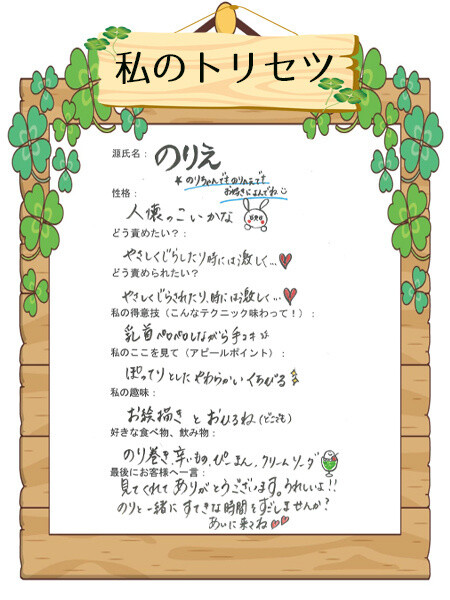 私のトリセツ
源氏名：のりえ
★のりちゃんでものりえでも
お好きによんでね
性格：
人懐っこいかな
どう責めたい？：
やさしくじらしたり時には激しく…
どう責められたい？
やさしくじらされたり、時には激しく…
私の得意技（こんなテクニック味わって！）：
乳首ペロペロしながら手コキ
私のここを見て（アピールポイント）：
ぽってりとしたやわらかいくちびる
私の趣味：
お絵描きとおひるね（どこでも）
好きな食べ物、飲み物：
のり巻き、辛いもの、ぴーまん、クリームソーダ
最後にお客様へ一言：
見てくれてありがとうございます。うれしいよ！！
のりと一緒にすてきな時間をすごしませんか？
あいに来てね